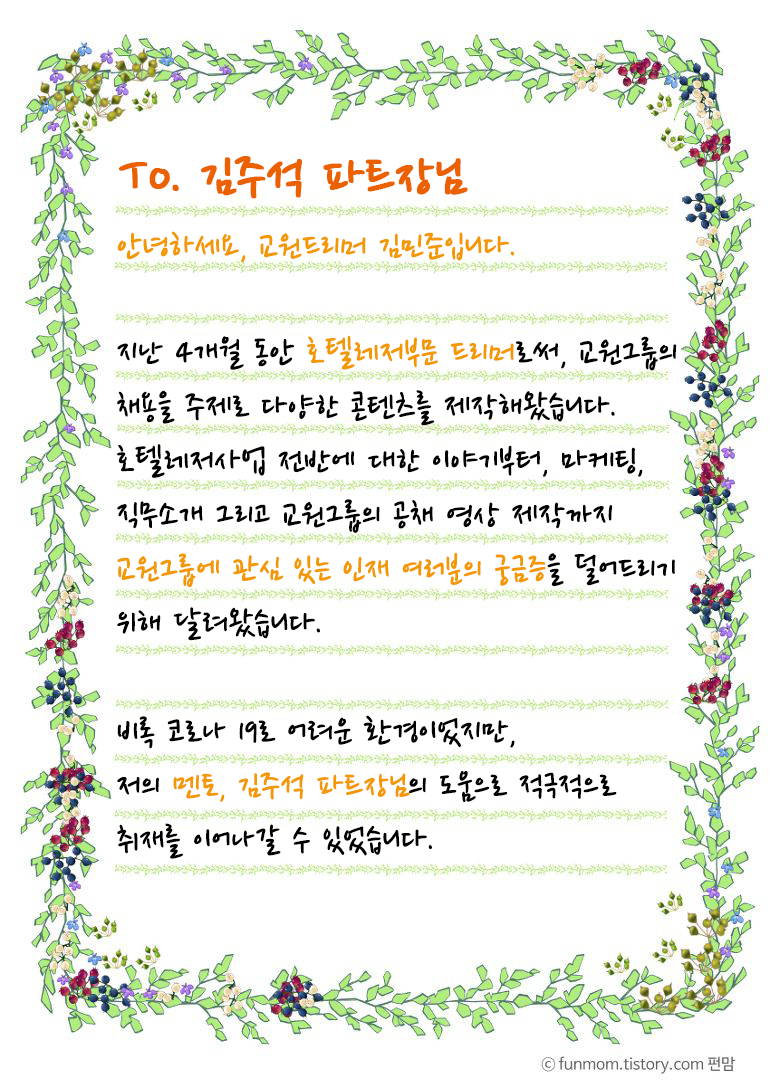 To. 김주석 파트장님
안녕하세요, 교원드리머 김민준입니다.
지난 4개월 동안 호텔레저부문 드리머로써, 교원그룹의
채용을 주제로 다양한 콘텐츠를 제작해왔습니다.
호텔레저사업 전반에 대한 이야기부터, 마케팅,
직무소개 그리고 교원그룹의 공채 영상 제작까지
교원그룹에 관심 있는 인재 여러분의 궁금증을 덜어드리기
위해 달려왔습니다.
비록 코로나 19로 어려운 환경이었지만,
저의 멘토, 김주석 파트장님의 도움으로 적극적으로
취재를 이어나갈 수 있었습니다.
ⓒ funmom.tistory.com 펀맘